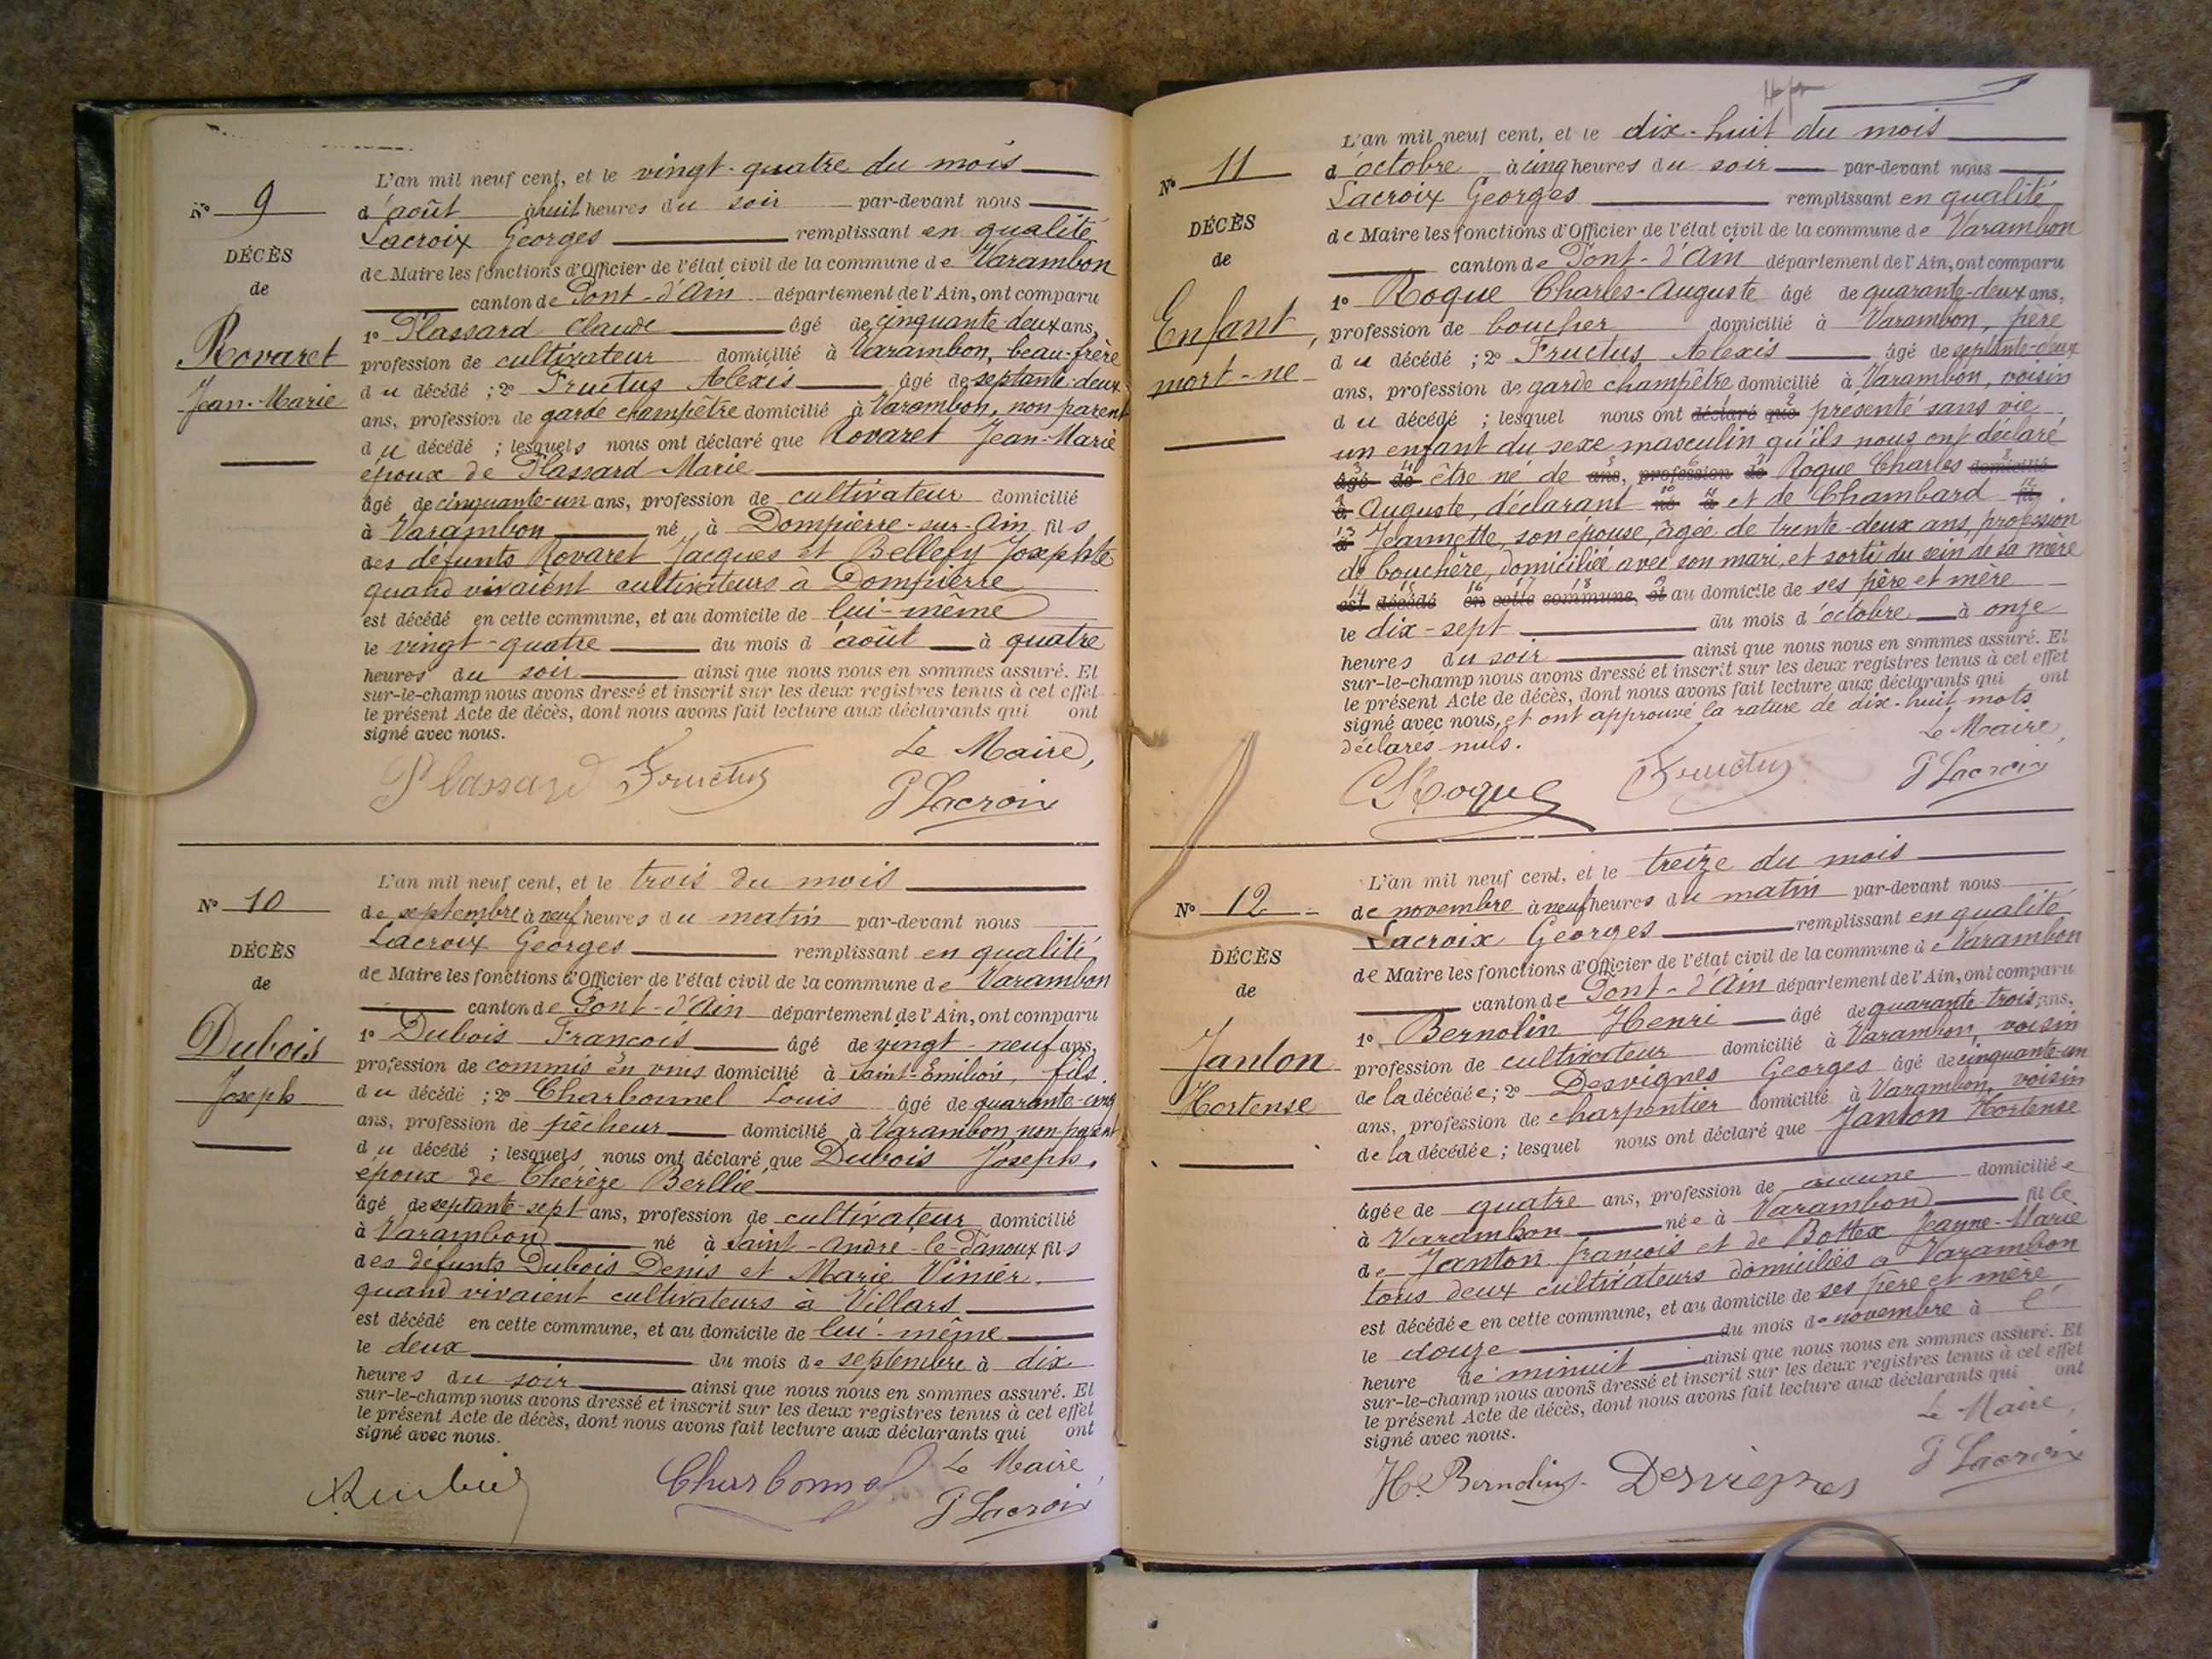 L'an mil neuf cent, et le vingt-quatre du mois
N° 9
d'août à huit heures du soir par-devant nous
Lacroix Georges remplissant en qualité
DÉCÈS
de Maire les fonctions d'Officier de l'état civil de la commune de Varambon
de
canton de Pont-d'Ain département de l'Ain, ont comparu
1° Plassard Claude âgé de cinquante-deux ans,
Rovaret
profession de cultivateur domicilié à Varambon, beau-frère
du décédé ; 2° Fructus Alexis âgé de septante-deux
Jean-Marie
ans, profession de garde champêtre domicilié à Varambon, non parent
du décédé ; lesquels nous ont déclaré que Rovaret Jean-Marie
époux de Plassard Marie
âgé de cinquante-un ans, profession de cultivateur domicilié
à Varambon né à Dompierre-sur-Ain fils
des défunts Rovaret Jacques et Bellefy Josephte
quand vivaient cultivateurs à Dompierre
est décédé en cette commune, et au domicile de lui-même
le vingt-quatre du mois d'août à quatre
heures du soir ainsi que nous nous en sommes assuré. Et
sur-le-champ nous avons dressé et inscrit sur les deux registres tenus à cet effet
le présent Acte de décès, dont nous avons fait lecture aux déclarants qui ont
signé avec nous.
Le Maire,
Plassard Fructus G Lacroix
L'an mil neuf cent, et le trois du mois
N° 10
de septembre à neuf heures du matin par-devant nous
Lacroix Georges remplissant en qualité
DÉCÈS
de Maire les fonctions d'Officier de l'état civil de la commune de Varambon
de
canton de Pont-d'Ain département de l'Ain, ont comparu
1° Dubois François âgé de vingt-neuf ans,
Dubois
profession de commis en vins domicilié à Saint-Emilion, fils
du décédé ; 2° Charbonnel Louis âgé de quarante-cinq
Joseph
ans, profession de pêcheur domicilié à Varambon non parent
du décédé ; lesquels nous ont déclaré que Dubois Joseph,
époux de Thérèze Berllié
âgé de septante-sept ans, profession de cultivateur domicilié
à Varambon né à Saint-André-le-Panoux fils
des défunts Dubois Denis et Marie Vinier
quand vivaient cultivateurs à Villars
est décédé en cette commune, et au domicile de lui-même
le deux du mois de septembre à dix
heures du soir ainsi que nous nous en sommes assuré. Et
sur-le-champ nous avons dressé et inscrit sur les deux registres tenus à cet effet
le présent Acte de décès, dont nous avons fait lecture aux déclarants qui ont
signé avec nous.
Le Maire,
Charbonnel G Lacroix
L'an mil neuf cent, et le dix-huit du mois
N° 11
d'octobre à cinq heures du soir par-devant nous
Lacroix Georges remplissant en qualité
DÉCÈS
de Maire les fonctions d'Officier de l'état civil de la commune de Varambon
de
canton de Pont-d'Ain département de l'Ain, ont comparu
1° Roque Charles-Auguste âgé de quarante-deux ans,
Enfant
profession de boucher domicilié à Varambon, père
du décédé ; 2° Fructus Alexis âgé de septante-deux
mort-né
ans, profession de garde champêtre domicilié à Varambon, voisin
du décédé ; lesquel nous ont déclaré que présenté sans vie
un enfant du sexe masculin qu'ils nous ont déclaré
âgé de être né de ans, profession de Roque Charles domicilié
à Auguste, déclarant né à et de Chambard fil
d Jeannette, son épouse, âgée de trente-deux ans profession
de bouchère, domiciliée avec son mari, et sorti du sein de sa mère
est décédé en cette commune, et au domicile de ses père et mère
le dix-sept du mois d'octobre à onze
heures du soir ainsi que nous nous en sommes assuré. Et
sur-le-champ nous avons dressé et inscrit sur les deux registres tenus à cet effet
le présent Acte de décès, dont nous avons fait lecture aux déclarants qui ont
signé avec nous, et ont approuvé la rature de dix-huit mots
déclarés nuls.
Le Maire,
C Roque Fructus G Lacroix
L'an mil neuf cent, et le treize du mois
N° 12
de novembre à neuf heures du matin par-devant nous
Lacroix Georges remplissant en qualité
DÉCÈS
de Maire les fonctions d'Officier de l'état civil de la commune de Varambon
de
canton de Pont-d'Ain département de l'Ain, ont comparu
1° Bernolin Henri âgé de quarante-trois ans,
Janton
profession de cultivateur domicilié à Varambon, voisin
de la décédée ; 2° Desvignes Georges âgé de cinquante-un
Hortense
ans, profession de charpentier domicilié à Varambon, voisin
de la décédée ; lesquel nous ont déclaré que Janton Hortense
âgée de quatre ans, profession de aucune domiciliée
à Varambon née à Varambon fille
de Janton françois et de Bottex Jeanne-Marie
tous deux cultivateurs domiciliés à Varambon
est décédée en cette commune, et au domicile de ses père et mère
le douze du mois de novembre à l'
heure de minuit ainsi que nous nous en sommes assuré. Et
sur-le-champ nous avons dressé et inscrit sur les deux registres tenus à cet effet
le présent Acte de décès, dont nous avons fait lecture aux déclarants qui ont
signé avec nous.
Le Maire,
H. Bernolin Desvignes G Lacroix